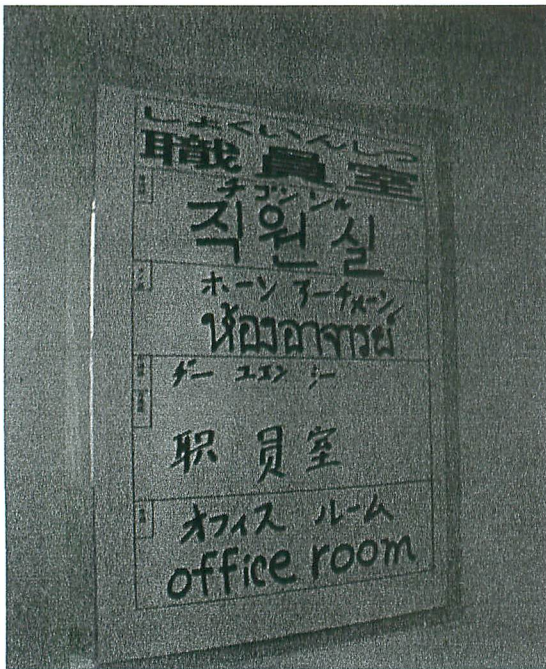 しょくいんしつ
職員室
チゴンシル
직원실
ホーン アーチャーン
ห้องอาจารย์
チー ユエン シー
职员室
オフィス ルーム
office room